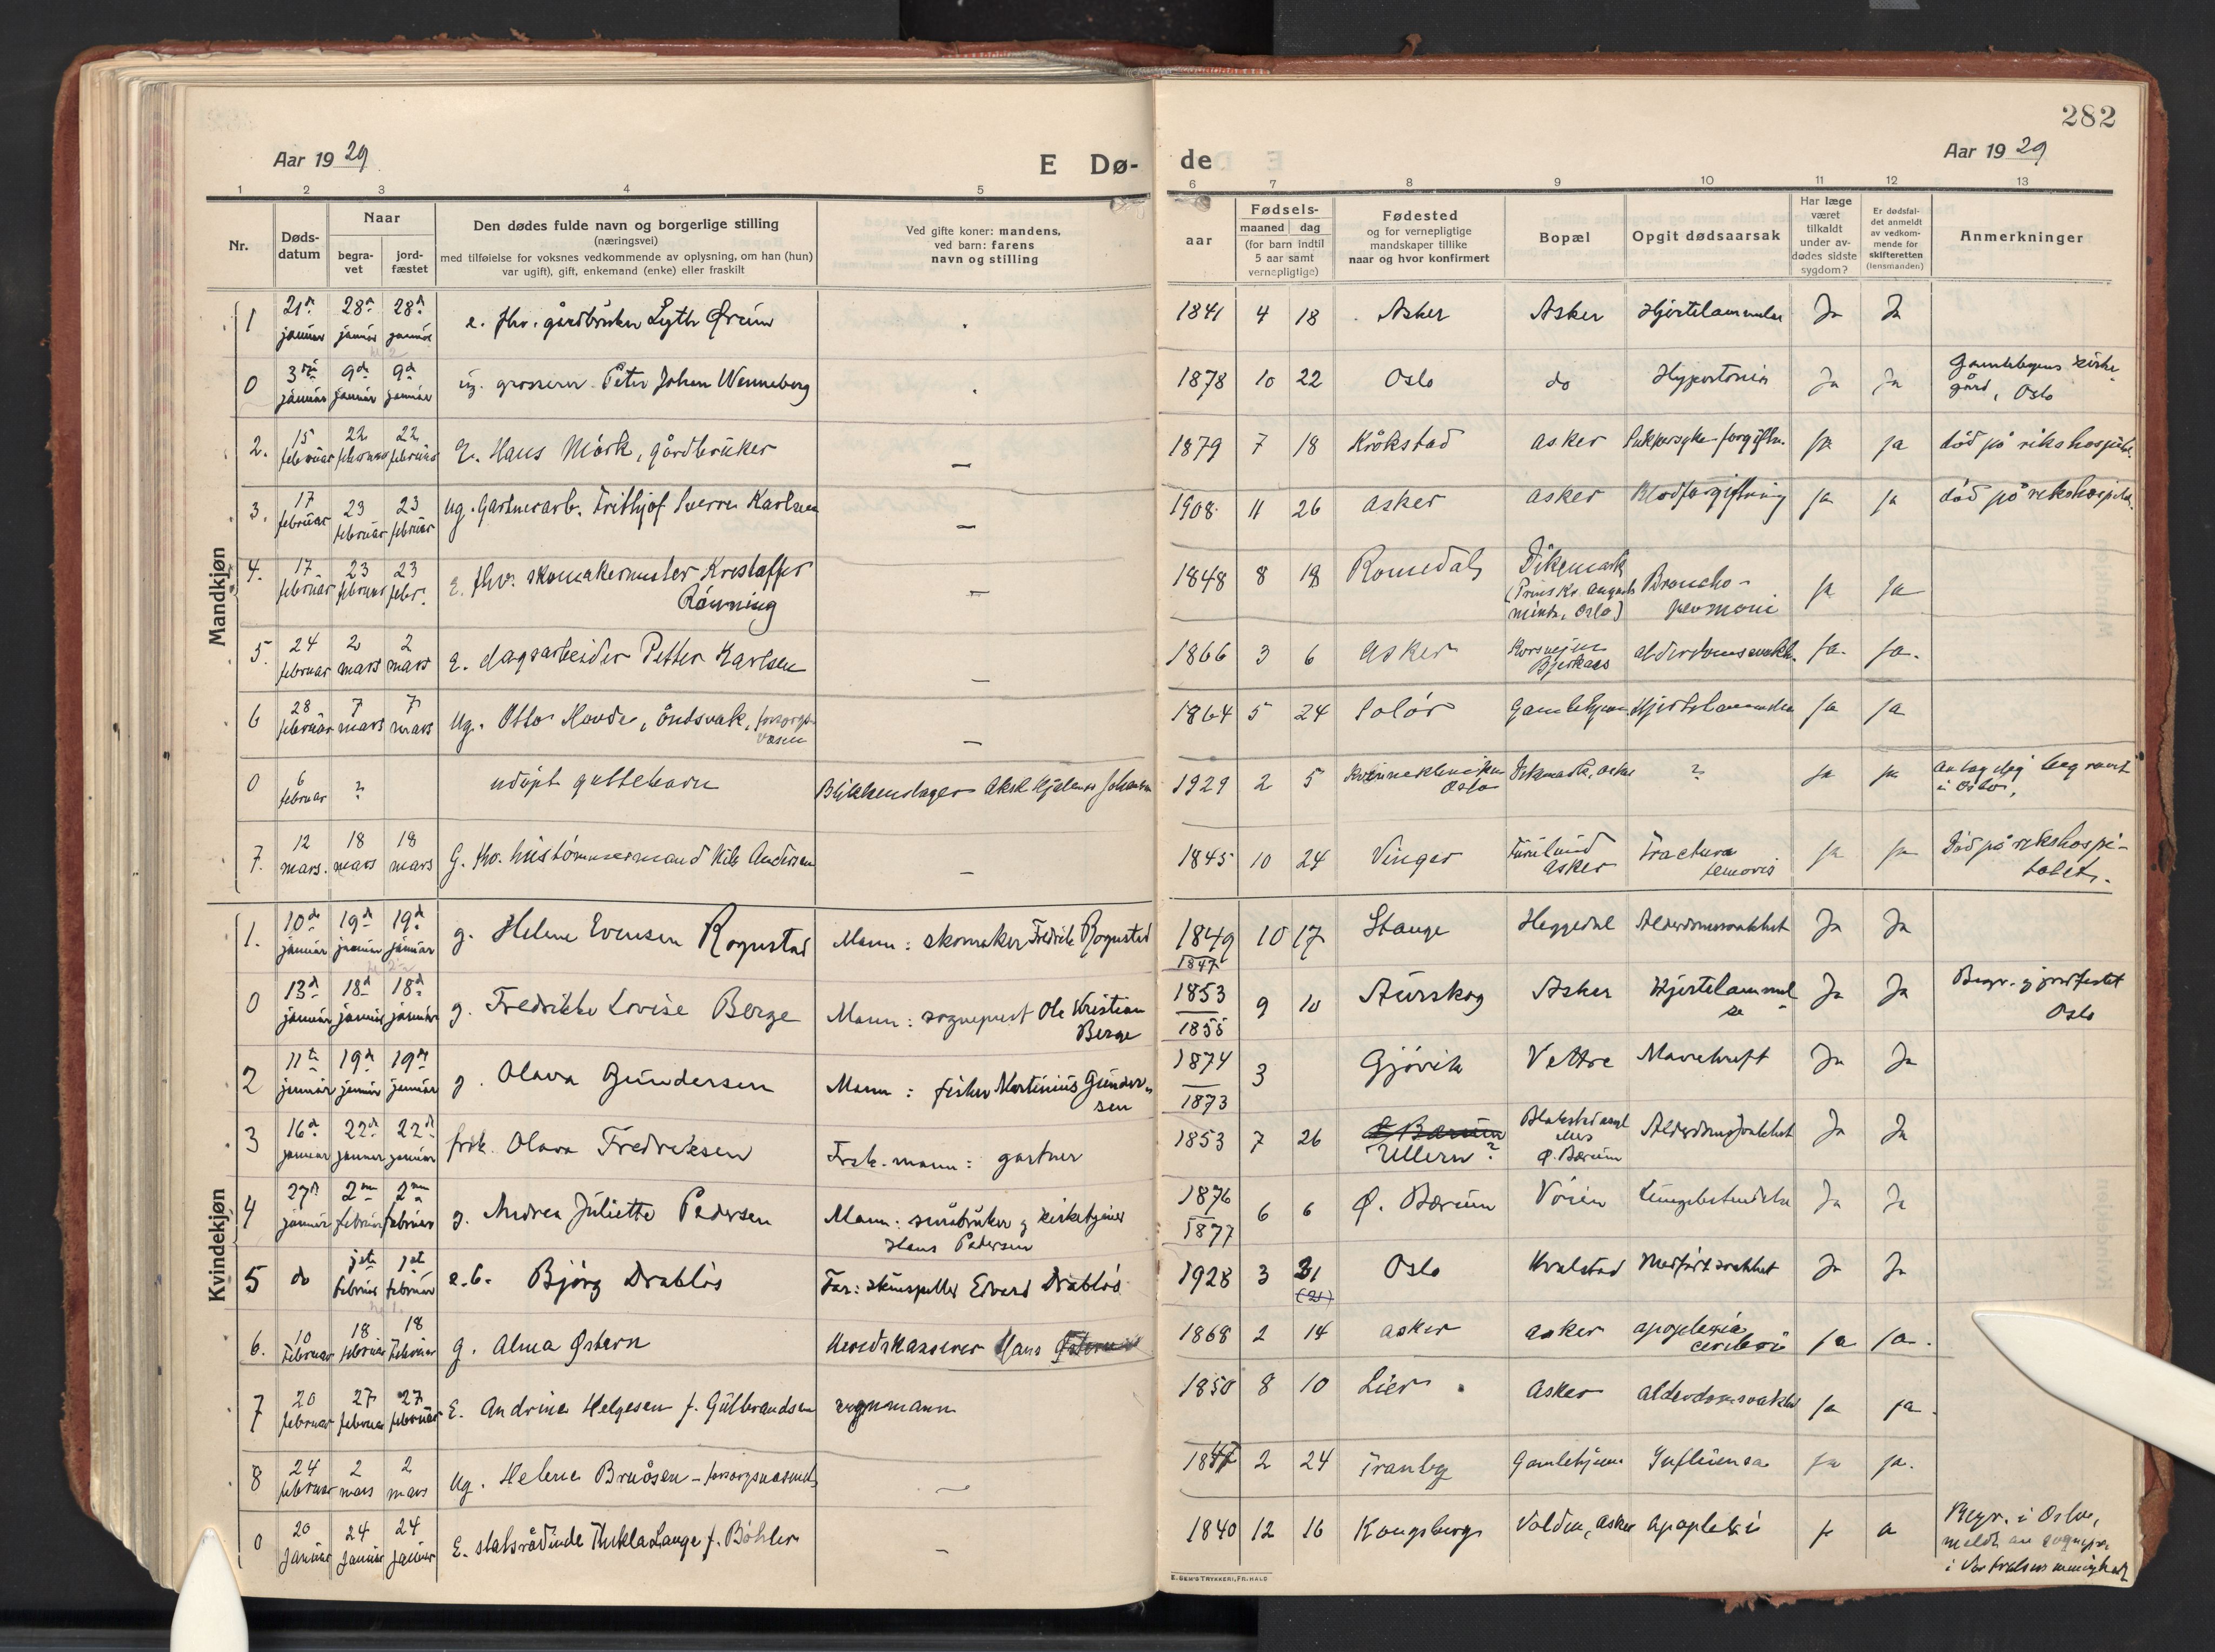 282
Aar 1929
E Dø-
de
Aar 1929
1 2 3 4 5
6 7 8 9 10 11 12 13
Nr.
Døds-
datum
Naar
begra-
vet
jord-
fæstet
Den dødes fulde navn og borgerlige stilling
(næringsvei)
med tilføielse for voksnes vedkommende av oplysning, om han (hun)
var ugift), gift, enkemand (enke) eller fraskilt
Ved gifte koner: mandens,
ved barn: farens
navn og stilling
aar
Fødsels-
maaned dag
(for barn indtil
5 aar samt
vernepligtige)
Fødested
og for vernepligtige
mandskaper tillike
naar og hvor konfirmert
Bopæl
Opgit dødsaarsak
Har læge
været
tilkaldt
under av-
dødes sidste
sygdom?
Er dødsfal-
det anmeldt
av vedkom-
mende for
skifteretten
(lensmanden)
Anmerkninger
Mandkjøn
1 21 januar 28 januar 28 januar e. fhv. gårdbruker 1841 4 18 Asker Asker Ja Ja
0 3 januar 9 januar 9 januar ug. grosserer Peter Johan Wenneberg 1878 10 22 Oslo do Hypertonia Ja Ja Gamlebyens kirke-
gård, Oslo
2. 15 februar 22 februar 22 februar E. Hans Mörk, gårdbruker — 1879 7 18 Kråkstad asker ja ja död på rikshospit.
3. 17 februar 23 februar 23 februar ug. Gartnerarb. Trithjof Sverre Karlsen — 1908 11 26 asker asker Blodforgiftning ja ja död på rikshospital.
4. 17 februar 23 februar 23 febr. E. fhv. skomakermester Kristoffer
Rönning — 1848 8 18 Romedal Dikemark
(Prins Kr. Augusts
minde, Oslo) Broncho-
pevmoni ja ja
5. 24 februar 2 mars 2 mars E. dagarbeider Petter Karlsen — 1866 3 6 asker ja. ja.
6 28 februar 7 mars 7 mars ug. Otto Hovde, åndsvak, forsorgs-
vasen — 1864 5 24 Solör Gamlehjem Hjertelammelse ja ja
0 6 februar ? udöpt guttebarn Hjalmar Johansen 1929 2 5 Kvinneklinikken
Oslo Dikemark, Asker ? ja ja antagelig begravet
i Oslo.
7. 12 mars. 18 mars 18 mars G. fhv. hustömmermand Nils Andersen — 1845 10 24 Vinger asker Fractura
femoris ja ja Död på rikshospi-
talet.
Kvindekjøn
1. 10 januar 19 januar 19 januar g. Helene Evensen Rognstad Mann: skomaker Fredrik Rognstad 1849
1847 10 17 Stange Heggedal Alderdomssvakhet Ja Ja
0 13 januar 18 januar 18 januar g. Fredrikke Lovise Berge Mann: sogneprest Ole Kristian
Berge 1853
1855 9 10 Aurskog Asker Hjertelammel
se Ja Ja Begr. og jordfestet
Oslo
2 11 januar 19 januar 19 januar g. Olava Gundersen Mann: fisker Martinius Gunder-
sen 1874
1873 3 Gjövik Vettre Mavekreft Ja Ja
3 16 januar 22 januar 22 januar frsk. Olava Fredriksen Frsk. mann: gartner 1853 7 26 Bærum
Ullern? Ø. Bærum Alderdomssvakhet Ja Ja
4 27 januar 2 februar 2 februar g. Andrea Juliette Pedersen Mann: småbruker og kirketjener
Hans Pedersen 1876
1877 6 6 Ø. Bærum Vöien Lungebetendelse Ja Ja
5 do 1st februar 1st februar e.b. Björg Drabløs Far: skuespiller Edvard Drabløs 1928 3 31
(21) Oslo Hvalstad Medfödt svakhet Ja Ja
6. 10 februar 18 februar 18 februar g. Alma Østern Herredskasserer Hans Østern 1868 2 14 asker asker apoplexia
cerebri ja ja.
7 20 februar 27 februar 27 februar E. Andrine Helgesen f. Gulbrandsen vognmann 1850 8 10 Lier asker alderdomssvakhet ja ja.
8 24 februar 2 mars 2 mars ug. Helene Bruåsen - forsorgsvasenet — 1847 2 24 Tranby Gamlehjem Influensa ja ja.
0 20 januar 24 januar 24 januar E. statsrådinde Thekla Lange f. Böhler — 1840 12 16 Kongsberg Volden, asker apopleksi Begr. i Oslo,
meldt av sognepr.
i Vor Frelsers menighet
E. SEM'S TRYKKERI, FR. HALD